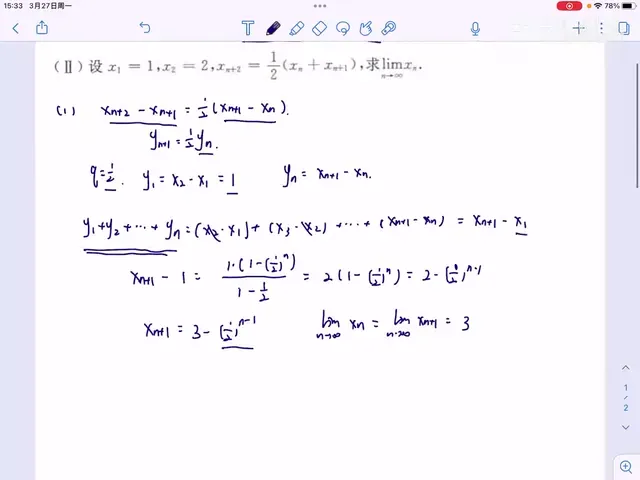 15:33 3月27日周一
78%
(Ⅱ) 设 x₁ = 1, x₂ = 2, xₙ₊₂ = 1/2(xₙ + xₙ₊₁), 求 lim n→∞ xₙ.
(1) xₙ₊₂ - xₙ₊₁ = 1/2 (xₙ₊₁ - xₙ).
yₙ₊₁ = 1/2 yₙ.
q = 1/2. y₁ = x₂ - x₁ = 1 yₙ = xₙ₊₁ - xₙ.
y₁+y₂+⋯+yₙ = (x₂-x₁)+(x₃-x₂)+⋯+(xₙ₊₁-xₙ) = xₙ₊₁ - x₁
xₙ₊₁ - 1 = 1·(1-(1/2)ⁿ) / (1 - 1/2) = 2(1-(1/2)ⁿ) = 2-(1/2)ⁿ⁻¹
xₙ₊₁ = 3 - (1/2)ⁿ⁻¹ lim n→∞ xₙ = lim n→∞ xₙ₊₁ = 3
1
/
2